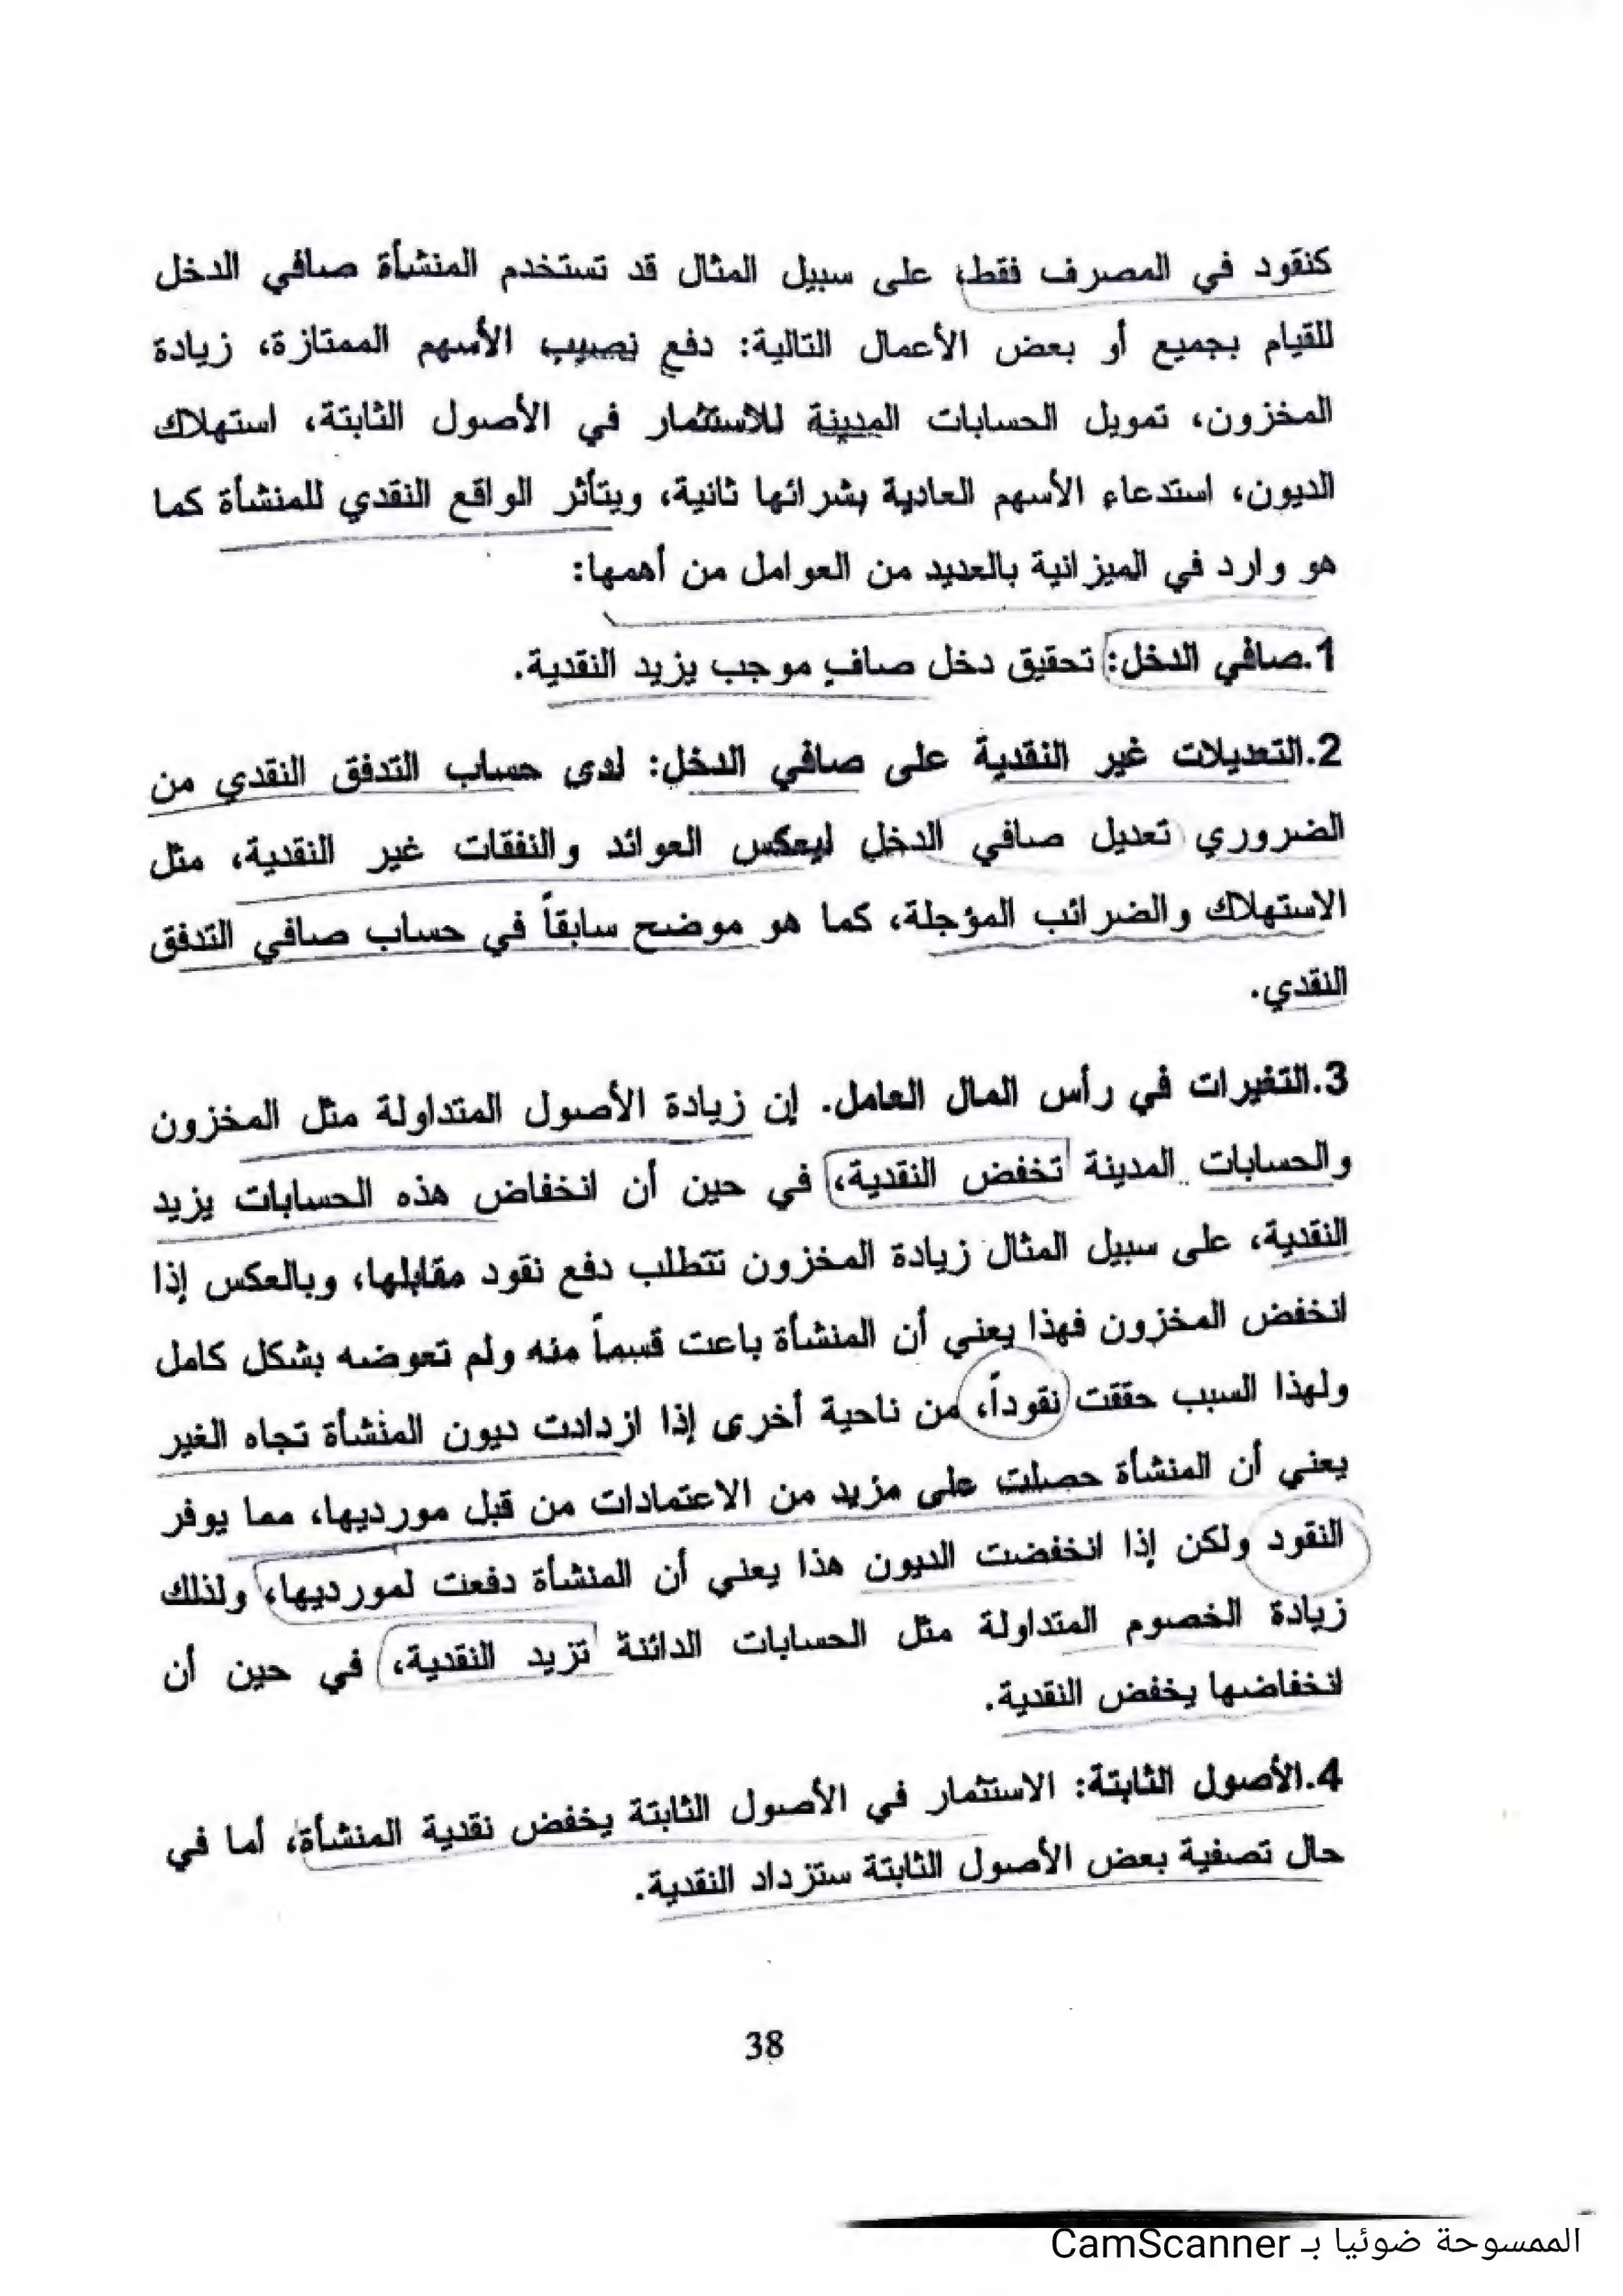 كنقود في المصرف فقط، على سبيل المثال قد تستخدم المنشأة صافي الدخل
للقيام بجميع أو بعض الأعمال التالية: دفع نصيب الأسهم الممتازة، زيادة
المخزون، تمويل الحسابات المدينة للاستثمار في الأصول الثابتة، استهلاك
الديون، استدعاء الأسهم العادية بشرائها ثانية، ويتأثر الواقع النقدي للمنشأة كما
هو وارد في الميزانية بالعديد من العوامل من أهمها:
1.صافي الدخل: تحقيق دخل صافٍ موجب يزيد النقدية.
2.التعديلات غير النقدية على صافي الدخل: لدى حساب التدفق النقدي من
الضروري تعديل صافي الدخل ليعكس العوائد والنفقات غير النقدية، مثل
الاستهلاك والضرائب المؤجلة، كما هو موضح سابقاً في حساب صافي التدفق
النقدي.
3.التغيرات في رأس المال العامل. إن زيادة الأصول المتداولة مثل المخزون
والحسابات المدينة تخفض النقدية، في حين أن انخفاض هذه الحسابات يزيد
النقدية، على سبيل المثال زيادة المخزون تتطلب دفع نقود مقابلها، وبالعكس إذا
انخفض المخزون فهذا يعني أن المنشأة باعت قسماً منه ولم تعوضه بشكل كامل
ولهذا السبب حققت نقوداً، من ناحية أخرى إذا ازدادت ديون المنشأة تجاه الغير
يعني أن المنشأة حصلت على مزيد من الاعتمادات من قبل مورديها، مما يوفر
النقود ولكن إذا انخفضت الديون هذا يعني أن المنشأة دفعت لمورديها، ولذلك
زيادة الخصوم المتداولة مثل الحسابات الدائنة تزيد النقدية، في حين أن
انخفاضها يخفض النقدية.
4.الأصول الثابتة: الاستثمار في الأصول الثابتة يخفض نقدية المنشأة، أما في
حال تصفية بعض الأصول الثابتة ستزداد النقدية.
38
الممسوحة ضوئيا بـ CamScanner